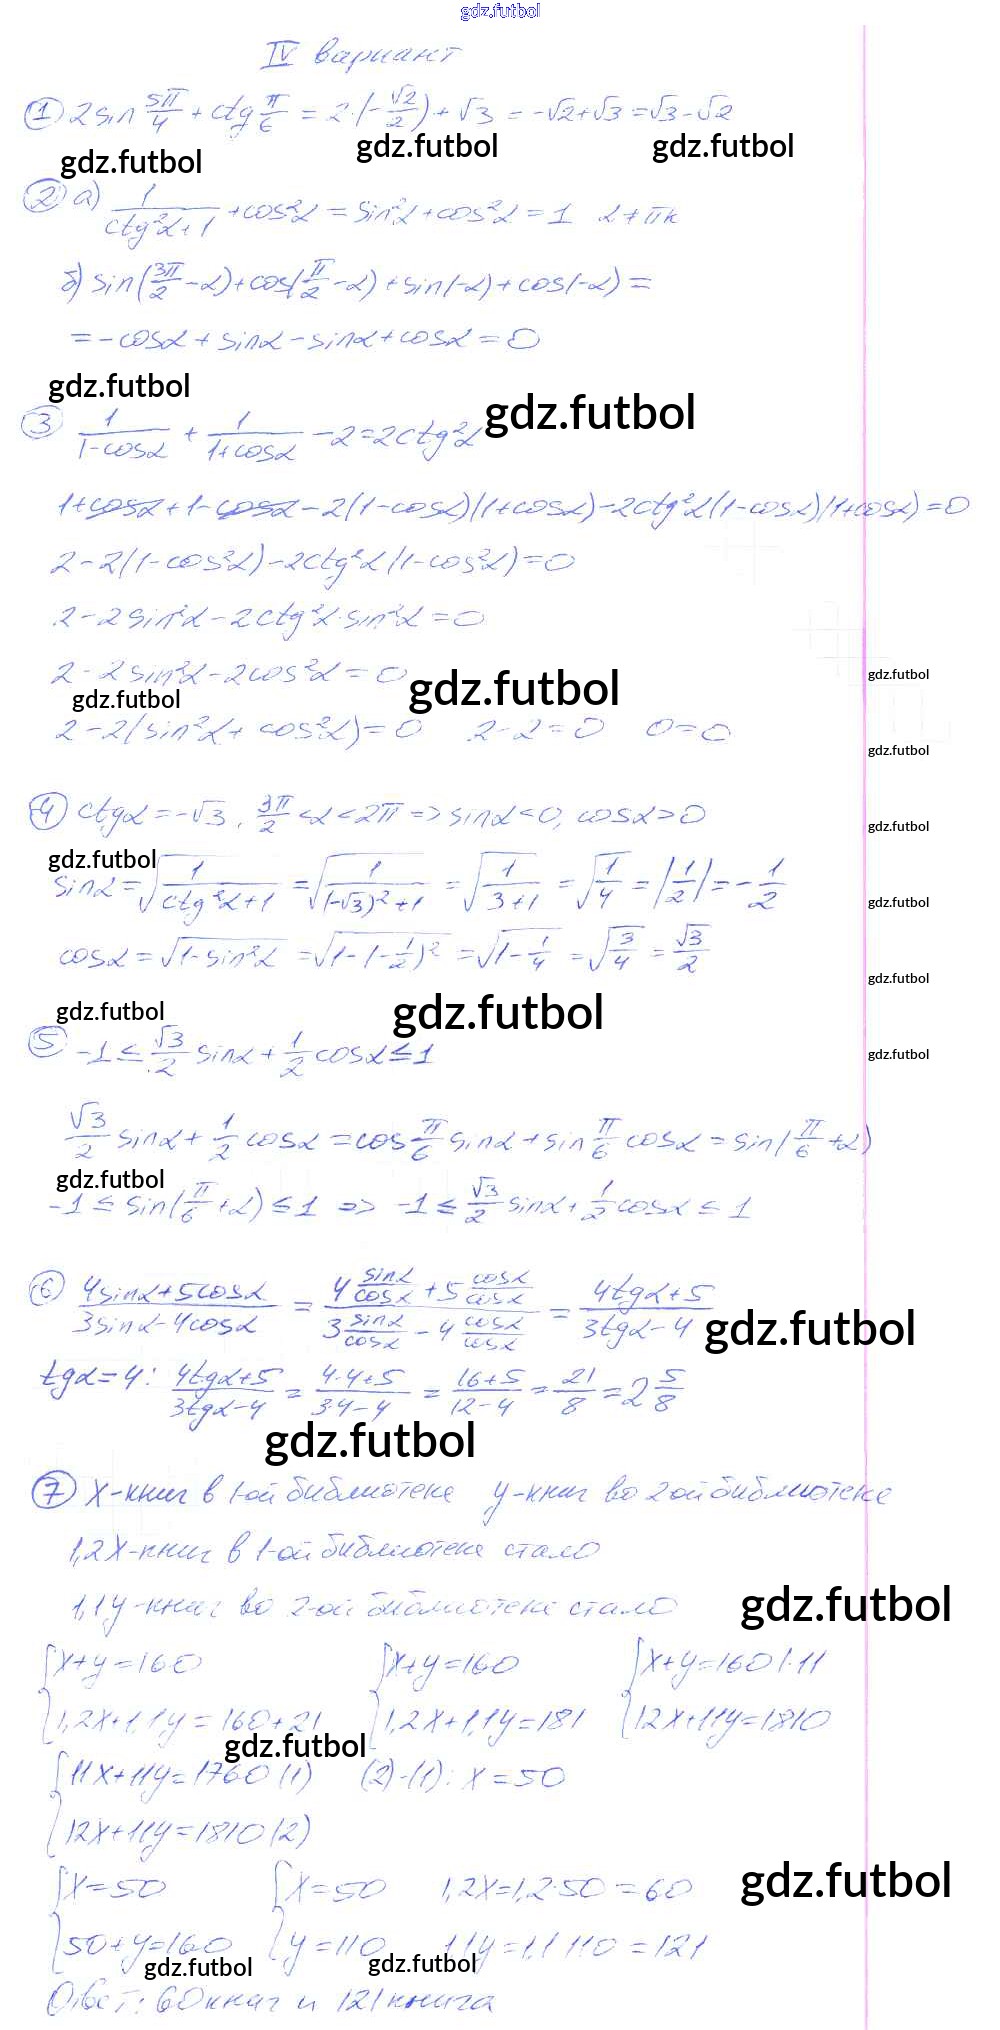 gdz.futbol
IV вариант
① 2sin 5π/4 + ctg π/6 = 2·(-√2/2) + √3 = -√2+√3 = √3-√2
gdz.futbol gdz.futbol gdz.futbol
② а) 1/(ctg²α+1) + cos²α = sin²α + cos²α = 1 α ≠ πk
б) sin(3π/2 - α) + cos(π/2 - α) + sin(-α) + cos(-α) =
= -cosα + sinα - sinα + cosα = 0
gdz.futbol
gdz.futbol
③ 1/(1-cosα) + 1/(1+cosα) - 2 = 2ctg²α
1+cosα+1-cosα-2(1-cosα)(1+cosα)-2ctg²α(1-cosα)(1+cosα)=0
2-2(1-cos²α)-2ctg²α(1-cos²α)=0
2-2sin²α-2ctg²α·sin²α=0
2-2sin²α-2cos²α=0
gdz.futbol gdz.futbol gdz.futbol
2-2(sin²α+cos²α)=0 2-2=0 0=0
gdz.futbol
④ ctgα=-√3, 3π/2<α<2π => sinα<0, cosα>0
gdz.futbol
gdz.futbol
sinα=√(1/(ctg²α+1)) = √(1/((-√3)²+1)) = √(1/(3+1)) = √(1/4) = |1/2| = -1/2
gdz.futbol
cosα=√(1-sin²α) = √(1-(-1/2)²) = √(1-1/4) = √(3/4) = √3/2
gdz.futbol
gdz.futbol gdz.futbol
⑤ -1 ≤ √3/2 sinα + 1/2 cosα ≤ 1
gdz.futbol
√3/2 sinα + 1/2 cosα = cos π/6 sinα + sin π/6 cosα = sin(π/6 + α)
gdz.futbol
-1 ≤ sin(π/6 + α) ≤ 1 => -1 ≤ √3/2 sinα + 1/2 cosα ≤ 1
⑥ (4sinα+5cosα)/(3sinα-4cosα) = (4 sinα/cosα + 5 cosα/cosα)/(3 sinα/cosα - 4 cosα/cosα) = (4tgα+5)/(3tgα-4)
gdz.futbol
tgα=4: (4tgα+5)/(3tgα-4) = (4·4+5)/(3·4-4) = (16+5)/(12-4) = 21/8 = 2 5/8
gdz.futbol
⑦ x-книг в 1-ой библиотеке y-книг во 2ой библиотеке
1,2x-книг в 1-ой библиотеке стало
1,1y-книг во 2-ой библиотеке стало
gdz.futbol
{x+y=160 {x+y=160 {x+y=160 |·11
1,2x+1,1y=160+21 1,2x+1,1y=181 12x+11y=1810
gdz.futbol
{11x+11y=1760 (1) (2)-(1): x=50
12x+11y=1810 (2)
gdz.futbol
{x=50 {x=50 1,2x=1,2·50=60
50+y=160 y=110 1,1y=1,1·110=121
gdz.futbol gdz.futbol
Ответ: 60 книг и 121 книга